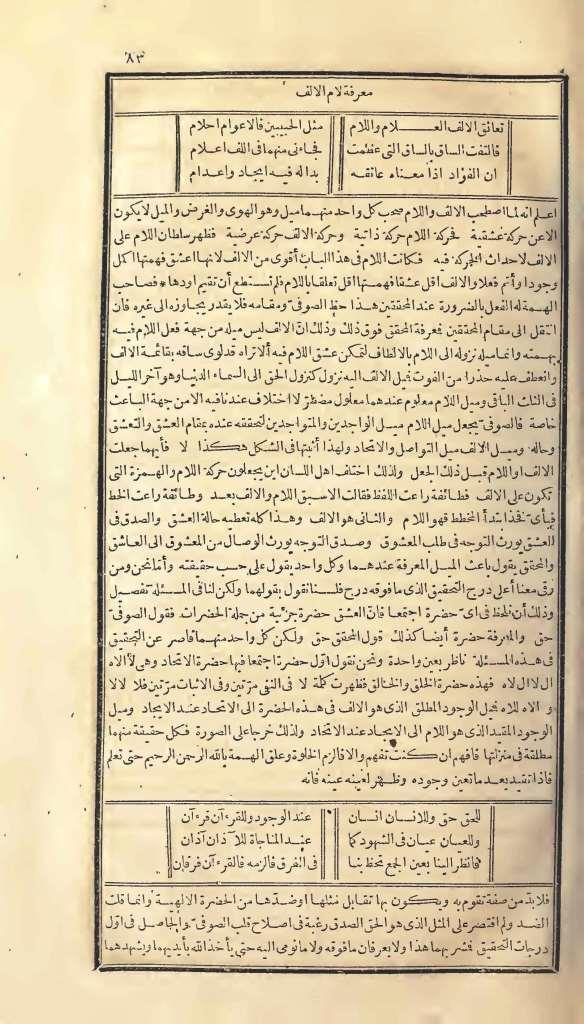 ٨٣
معرفة لام الالف
تعانق الالف العلام واللام مثل الحبيبين فالاعوام احلام
فالتفت الساق بالساق التى عظمت فجاءنى منهما فى اللف اعلام
ان الفؤاد اذا معناه عانقه بداله فيه ايجاد واعدام
اعلم انه لما اصطحب الالف واللام صحب كل واحد منهما ميل وهو الهوى والغرض والميل لا يكون
الا عن حركة عشقية فحركة اللام حركة ذاتية وحركة الالف حركة عرضية فظهر سلطان اللام على
الالف لاحداث الحركة فيه فكانت اللام فى هذا الباب أقوى من الالف لانها اعشق فهمتها اكمل
وجودا وأتم فعلا والالف اقل عشقا فهمتها اقل تعلقا باللام فلم تستطع أن تقيم اودها * فصاحب
الهمة له الفعل بالضرورة عند المحققين هذا حظ الصوفى ومقامه فلا يقدر يجاوزه الى غيره فان
انتقل الى مقام المحققين فعرفة المحقق فوق ذلك وذلك انّ الالف ليس ميله من جهة فعل اللام فيه
بهمته وانما ميله نزوله الى اللام بالالطاف لتمكن عشق اللام فيه ألا تراه قد لوى ساقه بقائمة الالف
وانعطف عليه حذرا من الفوت فيل الالف اليه نزول كنزول الحق الى السماء الدنيا وهو آخر الليل
فى الثلث الباقى وميل اللام معلوم عندهما معلول مضطرّ لا اختلاف عندنا فيه الا من جهة الباعث
خاصة فالصوفى يجعل ميل اللام ميل الواجدين والمتواجدين لتحققه عنده بمقام العشق والتعشق
وحاله وميل الالف ميل التواصل والاتحاد ولهذا أشبها فى الشكل هكذا لا فأيهما جعلت
الالف او اللام قبل ذلك الجعل ولذلك اختلف اهل اللسان اين يجعلون حركة اللام والهمزة التى
تكون على الالف فطائفة راعت اللفظ فقالت الاسبق اللام والالف بعد وطائفة راعت الخط
فبأى فخذ ابتدأ المخطط فهو اللام والثانى هو الالف وهذا كله تعطيه حالة العشق والصدق فى
العشق يورث التوجه فى طلب المعشوق وصدق التوجه يورث الوصال من المعشوق الى العاشق
والمحقق يقول باعث الميل المعرفة عندهما وكل واحد يقول على حسب حقيقته وأما نحن ومن
رقى معنا أعلى درج التحقيق الذى ما فوقه درج فلسنا نقول بقولهما ولكن لنا فى المسئلة تفصيل
وذلك أن تلحظ فى اىّ حضرة اجتمعا فانّ العشق حضرة جزئية من جملة الحضرات فقول الصوفى
حق والمعرفة حضرة أيضا كذلك فقول المحقق حق ولكن كل واحد منهما قاصر عن التحقيق
فى هذه المسئلة ناظر بعين واحدة ونحن نقول اوّل حضرة اجتمعا فيها حضرة الايجاد وهى لا اله
ال ل اه ل اه فهذه حضرة الخلق والخالق فظهرت كلمة لا فى النفى مرّتين وفى الاثبات مرّتين فلا لالا
و الاه للاه فيل الوجود المطلق الذى هو الالف فى هذه الحضرة الى الاتحاد عند الايجاد وميل
الوجود المقيد الذى هو اللام الى الايجاد عند الاتحاد ولذلك خرجا على الصورة فكل حقيقة منهما
مطلقة فى منزلتها فافهم ان كنت تفهم والا فالزم الخلوة وعلق الهمة بالله الرحمن الرحيم حتى تعلم
فاذا تقيد بعد ما تعين وجوده وظهر لعينه عينه فانه
للحق حق وللانسان انسان عند الوجود وللقرءان قرءآن
وللعيان عيان فى الشهود كما عند المناجاة للآذان آذان
فانظر الينا بعين الجمع تحظ بنا فى الفرق فالزمه فالقرءان فرقان
فلا بدّ من صفة تقوم به ويكون بها تقابل مثلها اوضدّها من الحضرة الالهية وانما قلت
الضد ولم اقتصر على المثل الذى هو الحق الصدق رغبة فى اصلاح قلب الصوفى والحاصل فى اوّل
درجات التحقيق فشر بهما هذا ولا يعرفان ما فوقه ولا ما نومى اليه حتى يأخذ الله بأيديهما ويشهدهما